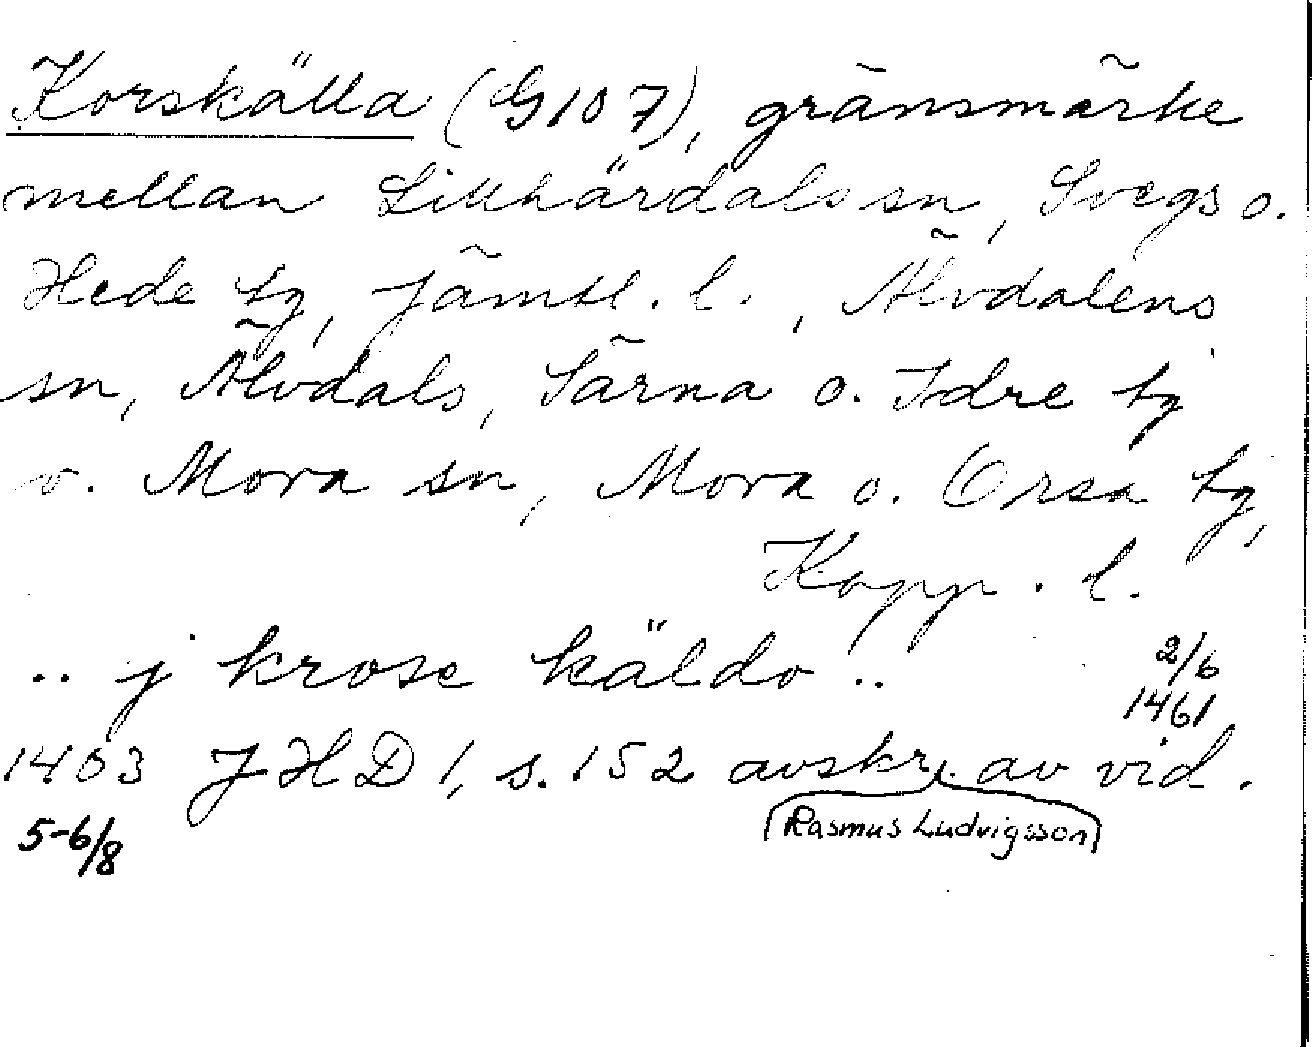 Korskälla (G107), gränsmärke
mellan Lillhärdals sn, Svegs o.
Hede tg, Jämtl. l., Älvdalens
sn, Älvdals, Särna o. Idre tg
o. Mora sn, Mora o. Orsa tg,
Kopp. l.
.. j krose käldo ..
2/6
1461
1463 JHD 1, s. 152 avskr. av vid.
5-6/8
(Rasmus Ludvigsson)